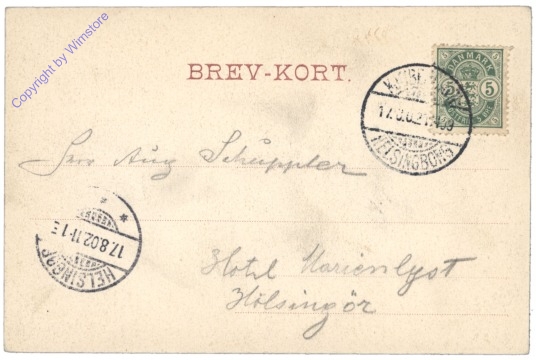 Copyright by Wimstore
BREV-KORT.
DANMARK
5 5
HELSINGBORG
Herr Aug Schuppler
17.8.02.11-1 E
HELSINGØR
Hotel Marienlyst
Hölsingör